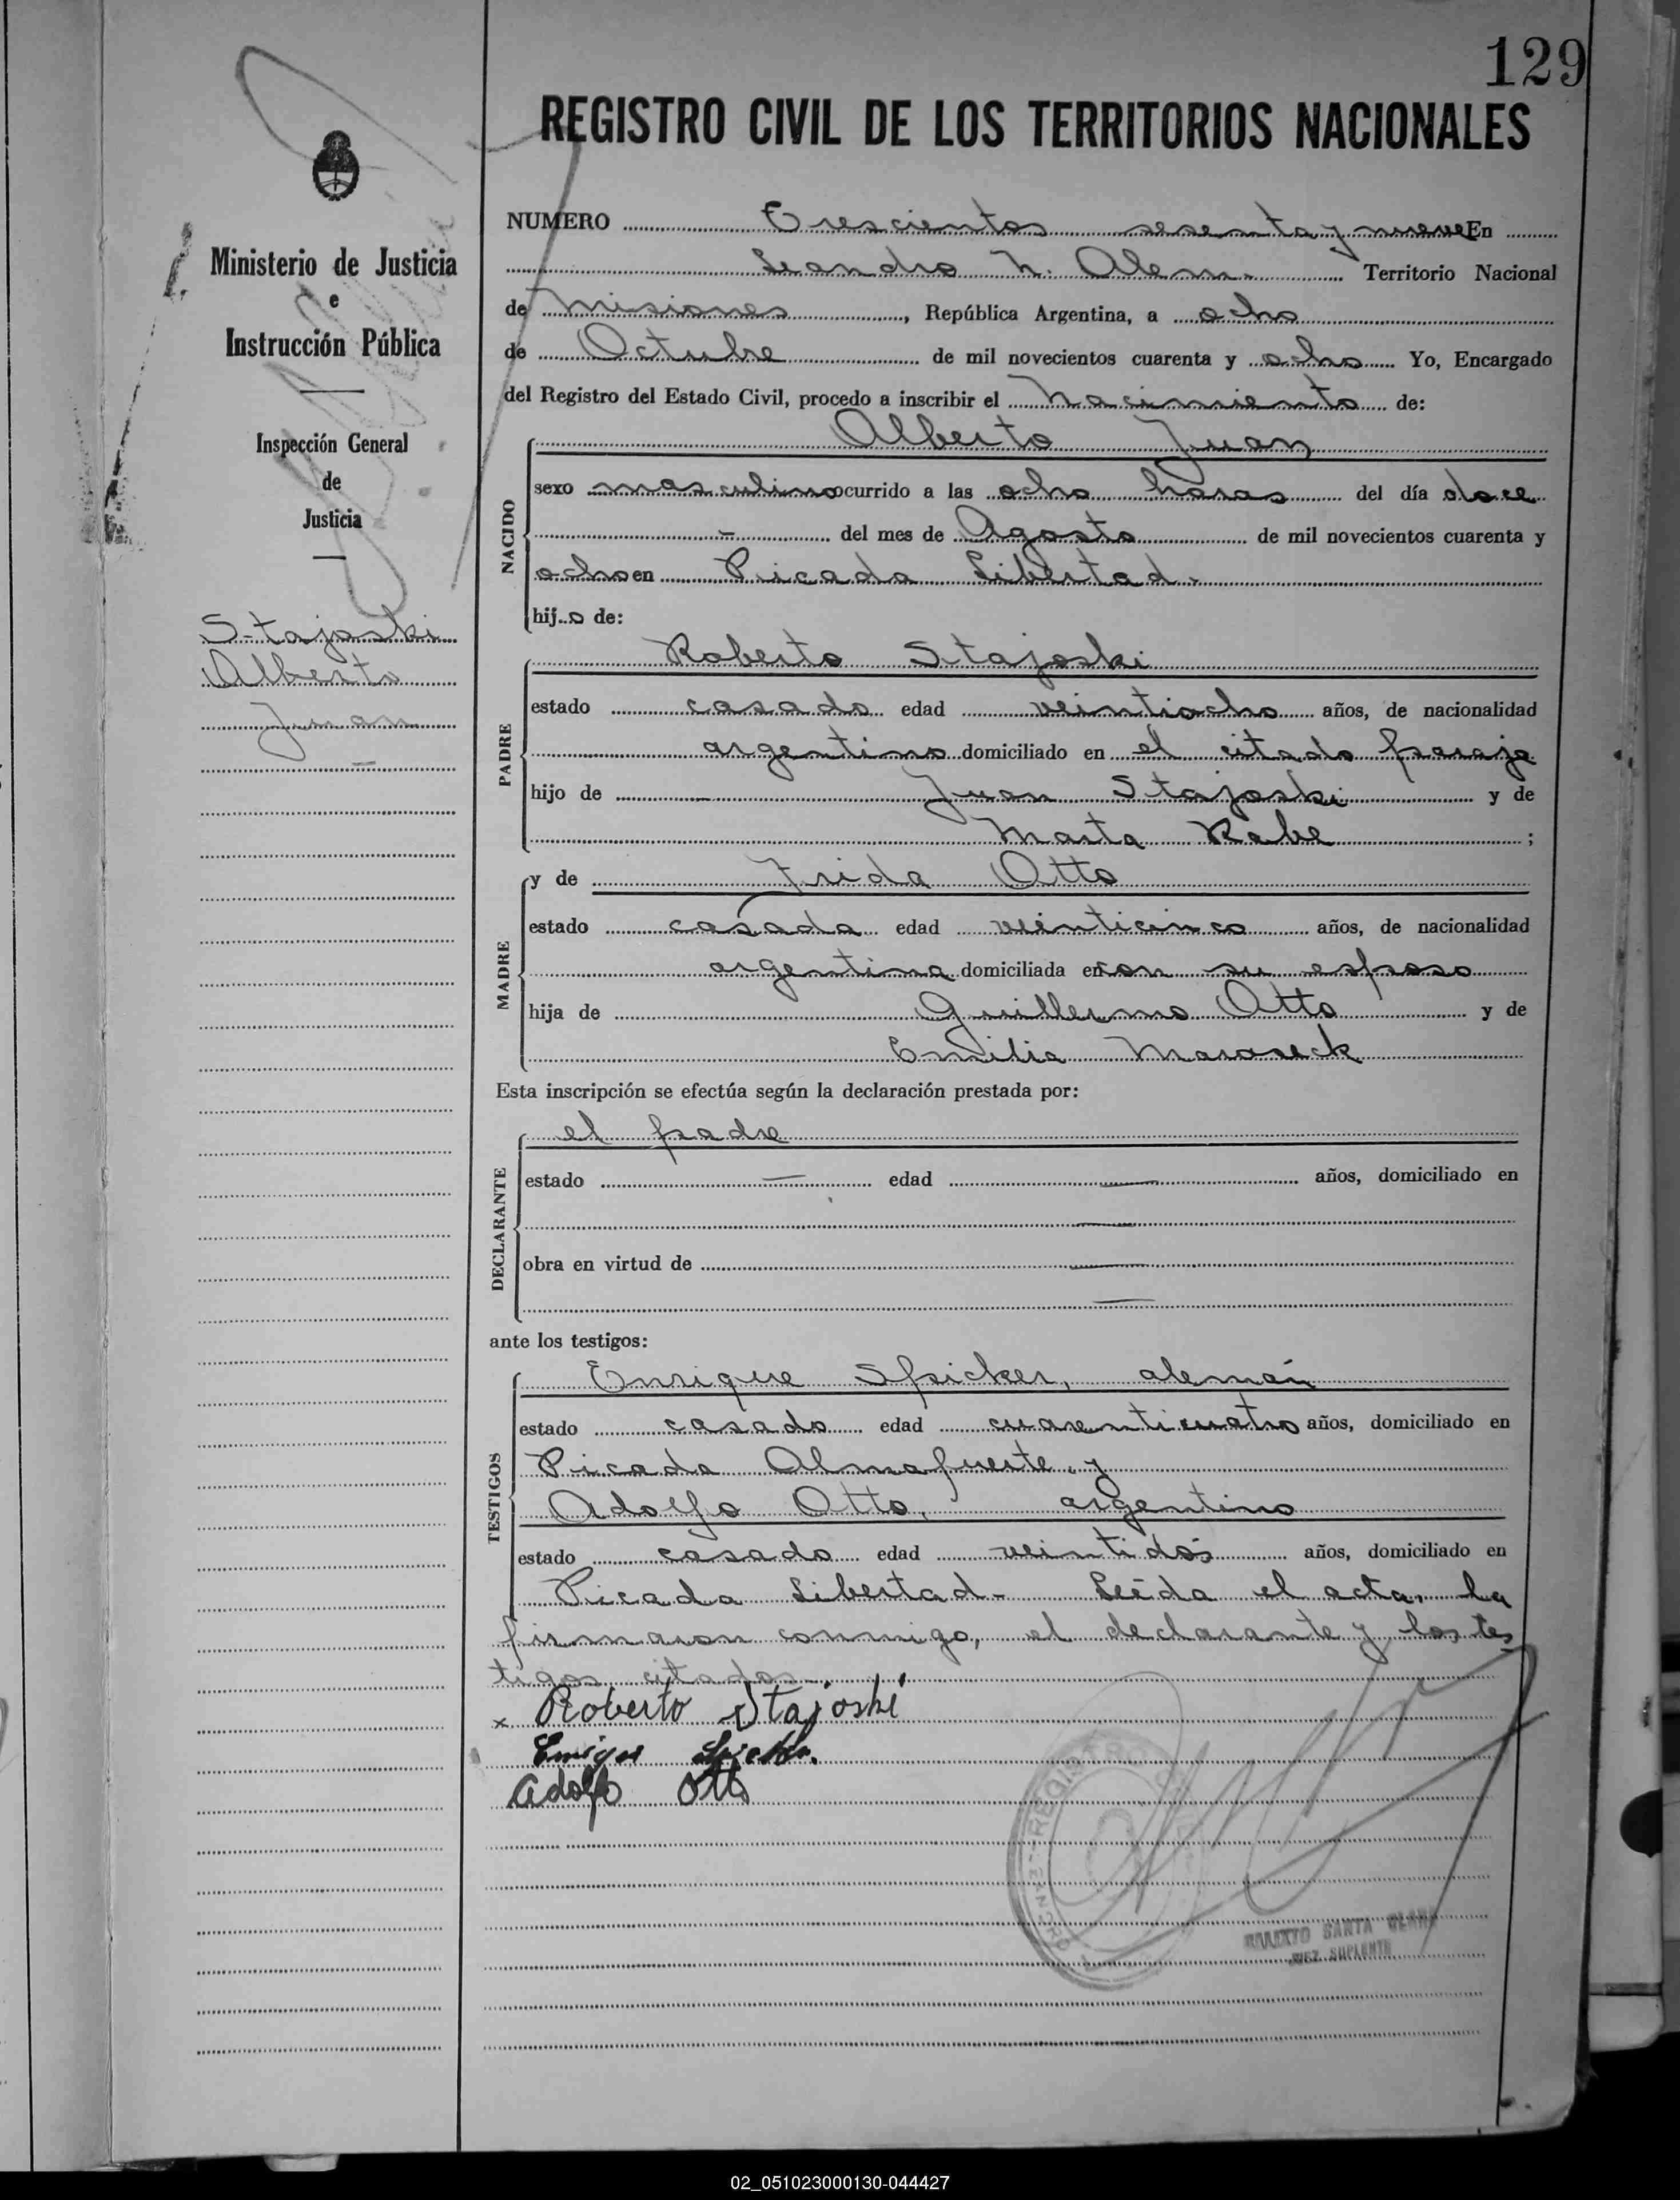 129
REGISTRO CIVIL DE LOS TERRITORIOS NACIONALES
Ministerio de Justicia
e
Instrucción Pública
Inspección General
de
Justicia
Stajoski
Alberto
Juan
NUMERO Trescientos sesenta y nueve En
Leandro N. Alem. Territorio Nacional
de Misiones, República Argentina, a ocho
de Octubre de mil novecientos cuarenta y ocho Yo, Encargado
del Registro del Estado Civil, procedo a inscribir el Nacimiento de:
NACIDO
Alberto Juan
sexo masculino ocurrido a las ocho horas del día doce
- del mes de Agosto de mil novecientos cuarenta y
ocho en Picada Libertad.
hijo de:
PADRE
Roberto Stajoski
estado casado edad veintiocho años, de nacionalidad
argentino domiciliado en el citado paraje
hijo de Juan Stajoski y de
Marta Rabe ;
MADRE
y de Frida Otto
estado casada edad veinticinco años, de nacionalidad
argentina domiciliada en con su esposo
hija de Guillermo Otto y de
Emilia Maroseck
Esta inscripción se efectúa según la declaración prestada por:
DECLARANTE
el padre
estado — edad — años, domiciliado en
—
obra en virtud de —
—
ante los testigos:
TESTIGOS
Enrique Spicker, alemán
estado casado edad cuarenticuatro años, domiciliado en
Picada Almafuerte, y
Adolfo Otto, argentino
estado casado edad veintidós años, domiciliado en
Picada Libertad- Leída el acta, la
firmaron conmigo, el declarante y los tes
tigos citados
x Roberto Stajoski
Adolfo Otto
REGISTRO
SANTA CLARA
JUEZ SUPLENTE
02_051023000130-044427